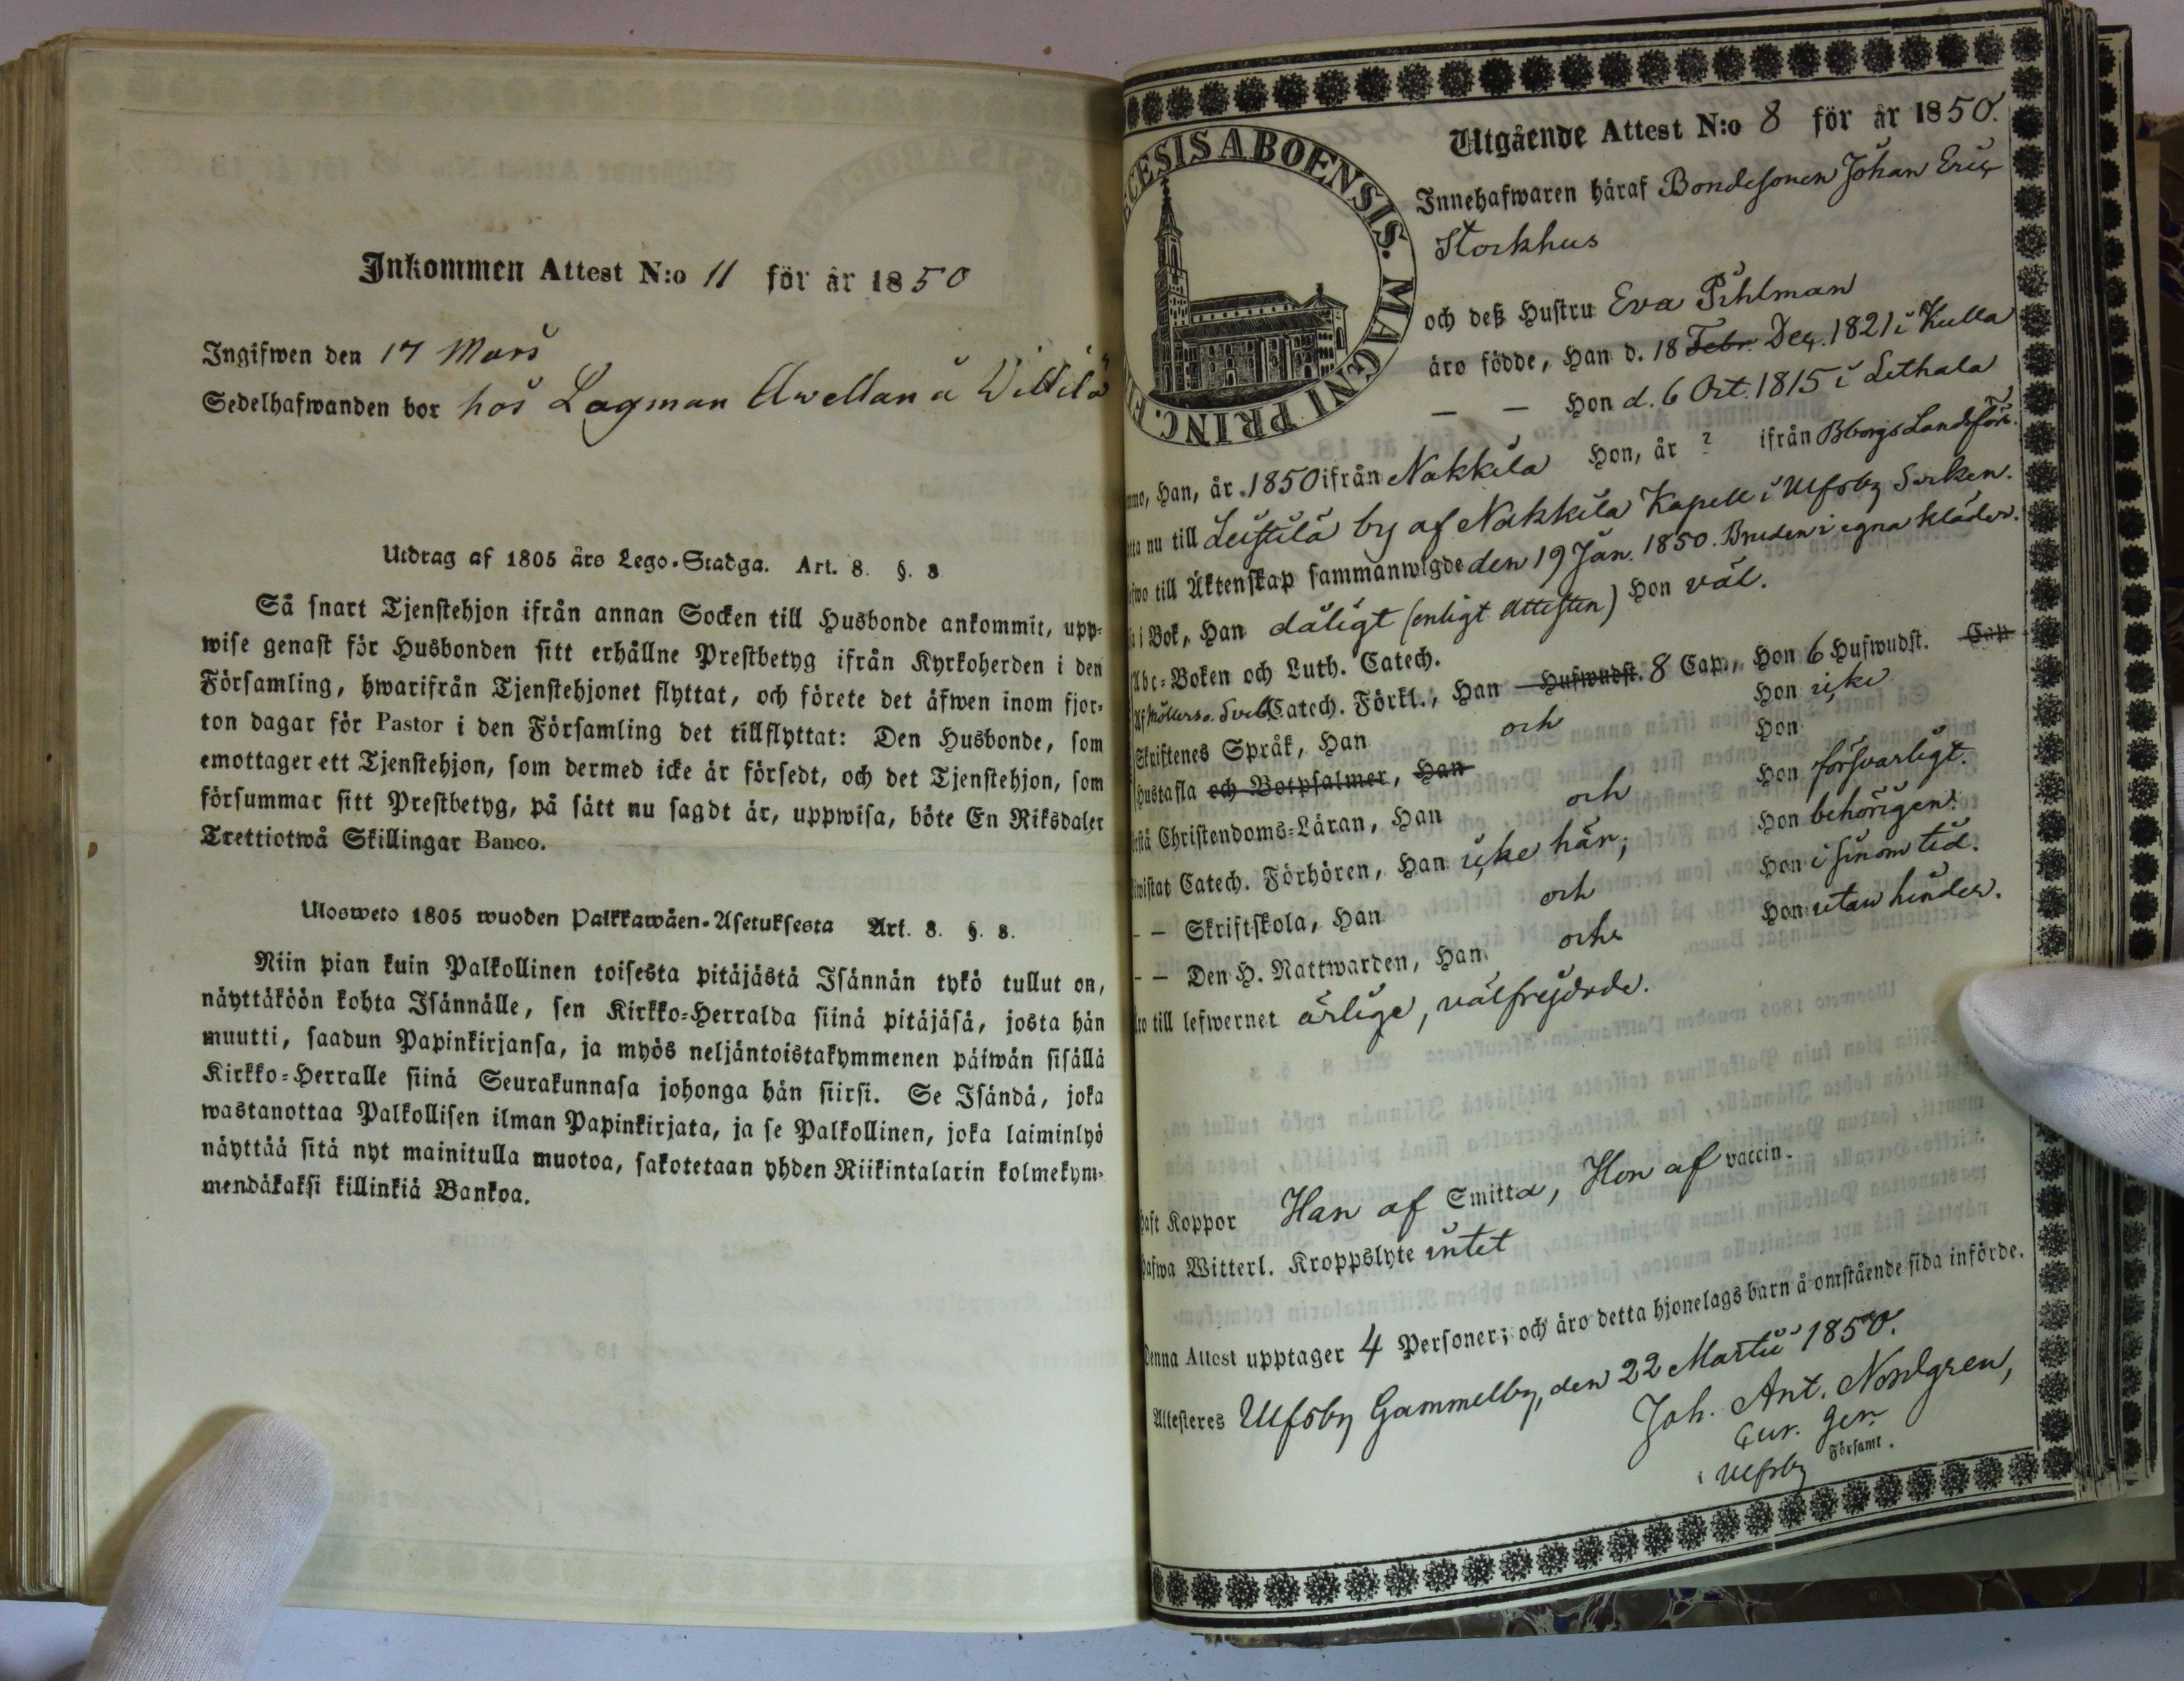 Inkommen Attest N:o 11 för år 1850
Ingifwen den 17 Mars
Sedelhafwanden bor hos Lagman Awellan å Willilä
Utdrag af 1805 års Lego-Stadga. Art. 8. §. 8
Så snart Tjenstehjon ifrån annan Socken till Husbonde ankommit, upp-
wise genast för Husbonden sitt erhållne Prestbetyg ifrån Kyrkoherden i den
Församling, hwarifrån Tjenstehjonet flyttat, och förete det äfwen inom fjor-
ton dagar för Pastor i den Församling det tillflyttat: Den Husbonde, som
emottager ett Tjenstehjon, som dermed icke är försedt, och det Tjenstehjon, som
försummar sitt Prestbetyg, på sätt nu sagdt är, uppwisa, böte En Riksdaler
Trettiotwå Skillingar Banco.
Ulosweto 1805 wuoden Palkkawäen-Asetuksesta Art. 8. §. 8.
Niin pian kuin Palkollinen toisesta pitäjästä Isännän tykö tullut on,
näyttäköön kohta Isännälle, sen Kirkko-Herralda siinä pitäjäsä, josta hän
muutti, saadun Papinkirjansa, ja myös neljäntoistakymmenen päiwän sisällä
Kirkko-Herralle siinä Seurakunnasa johonga hän siirsi. Se Isändä, joka
wastanottaa Palkollisen ilman Papinkirjata, ja se Palkollinen, joka laiminlyö
näyttää sitä nyt mainitulla muotoa, sakotetaan yhden Riikintalarin kolmekym-
mendäkaksi killinkiä Bankoa.
CESIS ABOENSIS. MAGNI PRINC. FI
Utgående Attest N:o 8 för år 1850.
Innehafwaren häraf Bondesonen Johan Eric
Storkhus
och deß Hustru Eva Pihlman
äro födde, Han d. 18 Febr. Dec. 1821 i Kulla
— — Hon d. 6 Oct. 1815 i Lethala
mmo, Han, år 1850 ifrån Nakkila Hon, år ? ifrån Bborgs Landsförs.
tta nu till Leistilä by af Nakkila Kapell i Ulfsby Socken.
fwo till Äktenskap sammanwigde den 19 Jan. 1850. Bruden i egna kläder.
a i Bok, Han dåligt (enligt Attesten) Hon väl.
Abc-Boken och Luth. Catech.
Af Möllers o. Sveb. Catech. Förkl., Han Hufwudst. 8 Cap., Hon 6 Hufwudst. Cap
Skriftenes Språk, Han och Hon icke
Hustafla och Botpsalmer, Han Hon
rstå Christendoms-Läran, Han och Hon försvarligt.
iwistat Catech. Förhören, Han icke här; Hon behörigen.
– – Skriftskola, Han och Hon i sinom tid.
– – Den H. Nattwarden, Han och Hon utan hinder.
äro till lefwernet ärlige, välfrejdade.
haft Koppor Han af Smitta, Hon af vaccin.
hafwa Witterl. Kroppslyte intet
Denna Attest upptager 4 Personer; och äro detta hjonelags barn å omstående sida införde.
Attesteres Ulfsby Gammelby, den 22 Martii 1850.
Joh. Ant. Nordgren,
Cur. Ger.
i Ulfsby Församl.